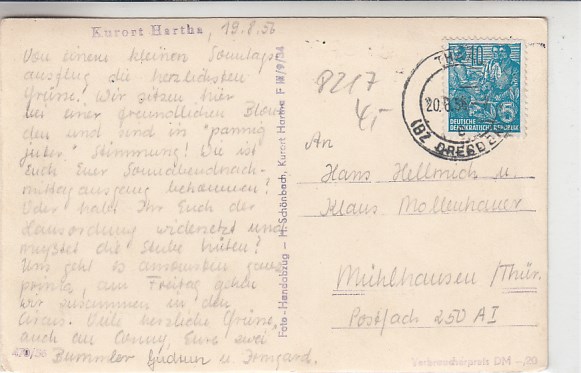 Kurort Hartha, 19.8.56
Von einem kleinen Sonntags-
ausflug die herzlichsten
Grüsse! Wir sitzen hier
bei einer freundlichen Blon-
den und sind in
guter" Stimmung! Wie ist
Euch Euer Sonnabendnach-
mittagausgang bekommen?
Oder habt Ihr Euch der
Hausordnung widersetzt und
mußtet die Stube hüten?
Uns geht es ansonsten ganz
prima, am Freitag gehen
wir zusammen in den
Circus. Viele herzliche Grüsse,
auch an Conny, Eure zwei
Bummler Gudrun u. Irmgard.
Foto-Handabzug - H. Schönbach, Kurort Hartha F III/9/34
8217
4,-
10
5
DEUTSCHE
DEMOKRATISCHE REPUBLIK
20.8.56
(BZ DRESDEN)
An
Hans Hellmich u.
Klaus Mollenhauer
Mühlhausen/Thür.
Postfach 250 A I
Verbraucherpreis DM -,20